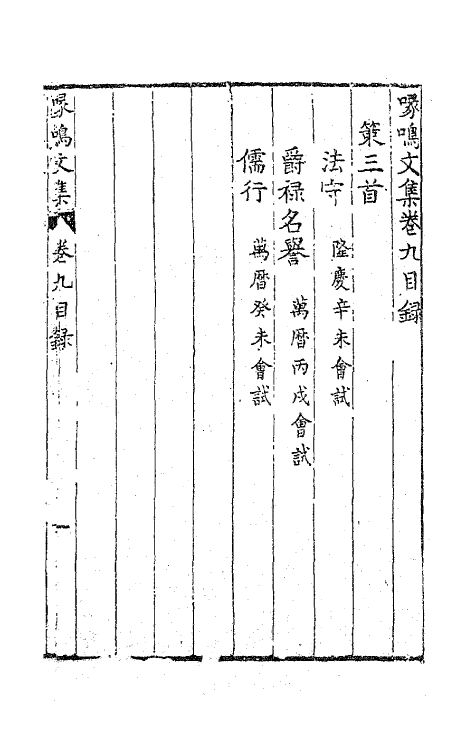 喙鳴文集卷九目録
策三首
法守　隆慶辛未會試
爵禄名譽　萬曆丙戌會試
儒行　萬曆癸未會試
喙鳴文集　卷九目録　一